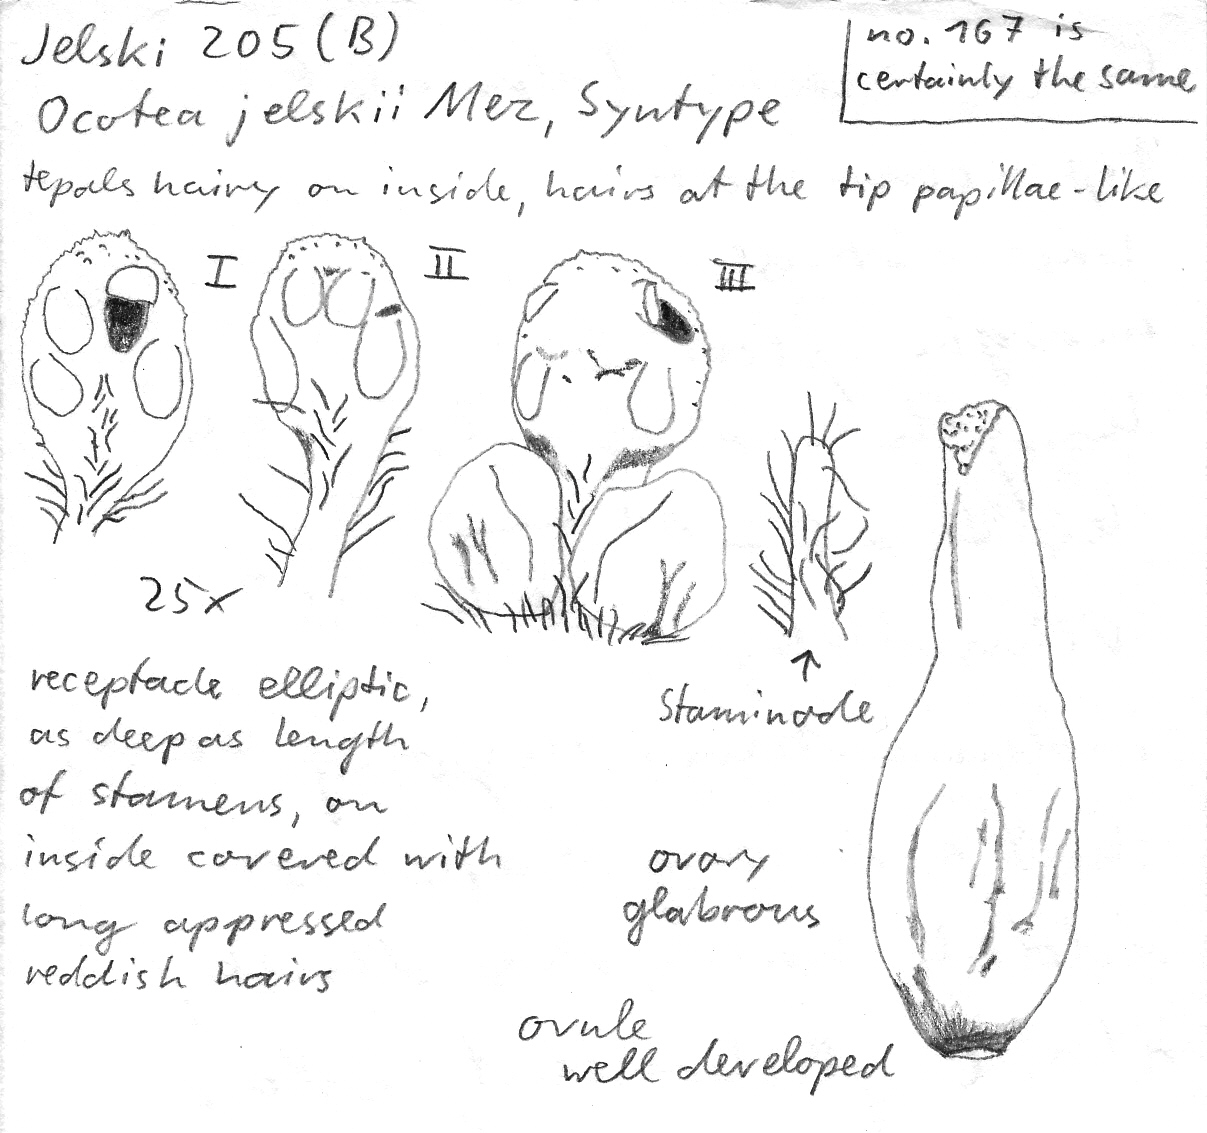 Jelski 205 (B)
no. 167 is
certainly the same
Ocotea jelskii Mez, Syntype
tepals hairy on inside, hairs at the tip papillae-like
I
II
III
25x
Staminode
receptacle elliptic,
as deep as length
of stamens, on
inside covered with
long appressed
reddish hairs
ovary
glabrous
ovule
well developed